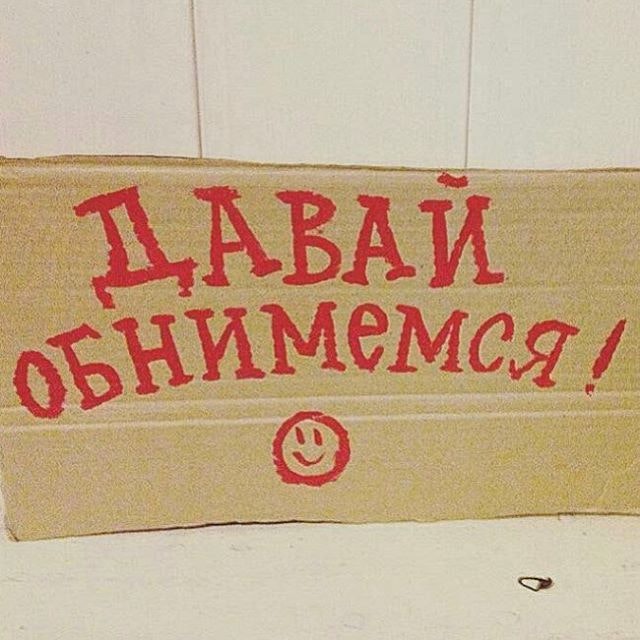 ДАВАЙ
ОБНИМЕМСЯ!